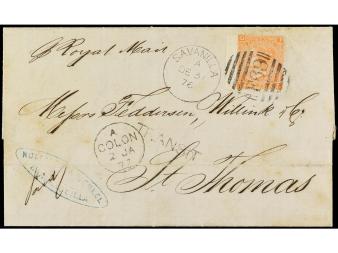 p Royal Mail
SAVANILLA
A
DE 3
76
Messrs Feddersen, Willink & Co
A
COLON
2 JA
77
TRANSIT
St Thomas
paid